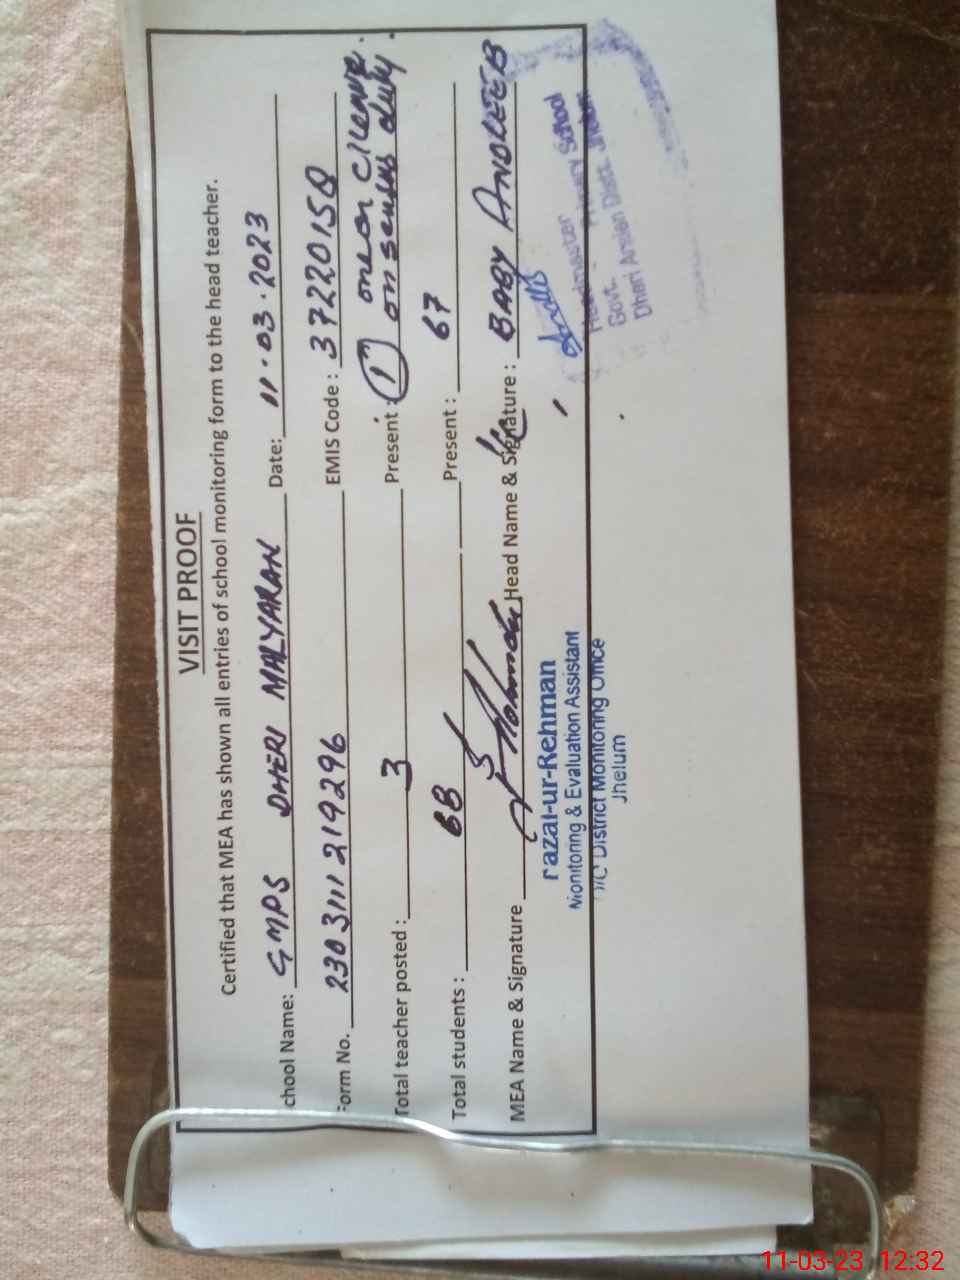 VISIT PROOF
Certified that MEA has shown all entries of school monitoring form to the head teacher.
chool Name: GMPS DHERI MALYARAN Date: 11.03.2023
Form No. 230311121 9296 EMIS Code: 37220150
one on C/Leave.
Total teacher posted: 3 Present: 1 on sensus duty.
Total students: 68 Present: 67
MEA Name & Signature Head Name & Signature: BABY ANDLEEB
razal-ur-Rehman
Monitoring & Evaluation Assistant
District Monitoring Office
Jhelum
Headmaster
Govt. Primary School
Dhari Distt. Jhelum
11-03-23 12:32